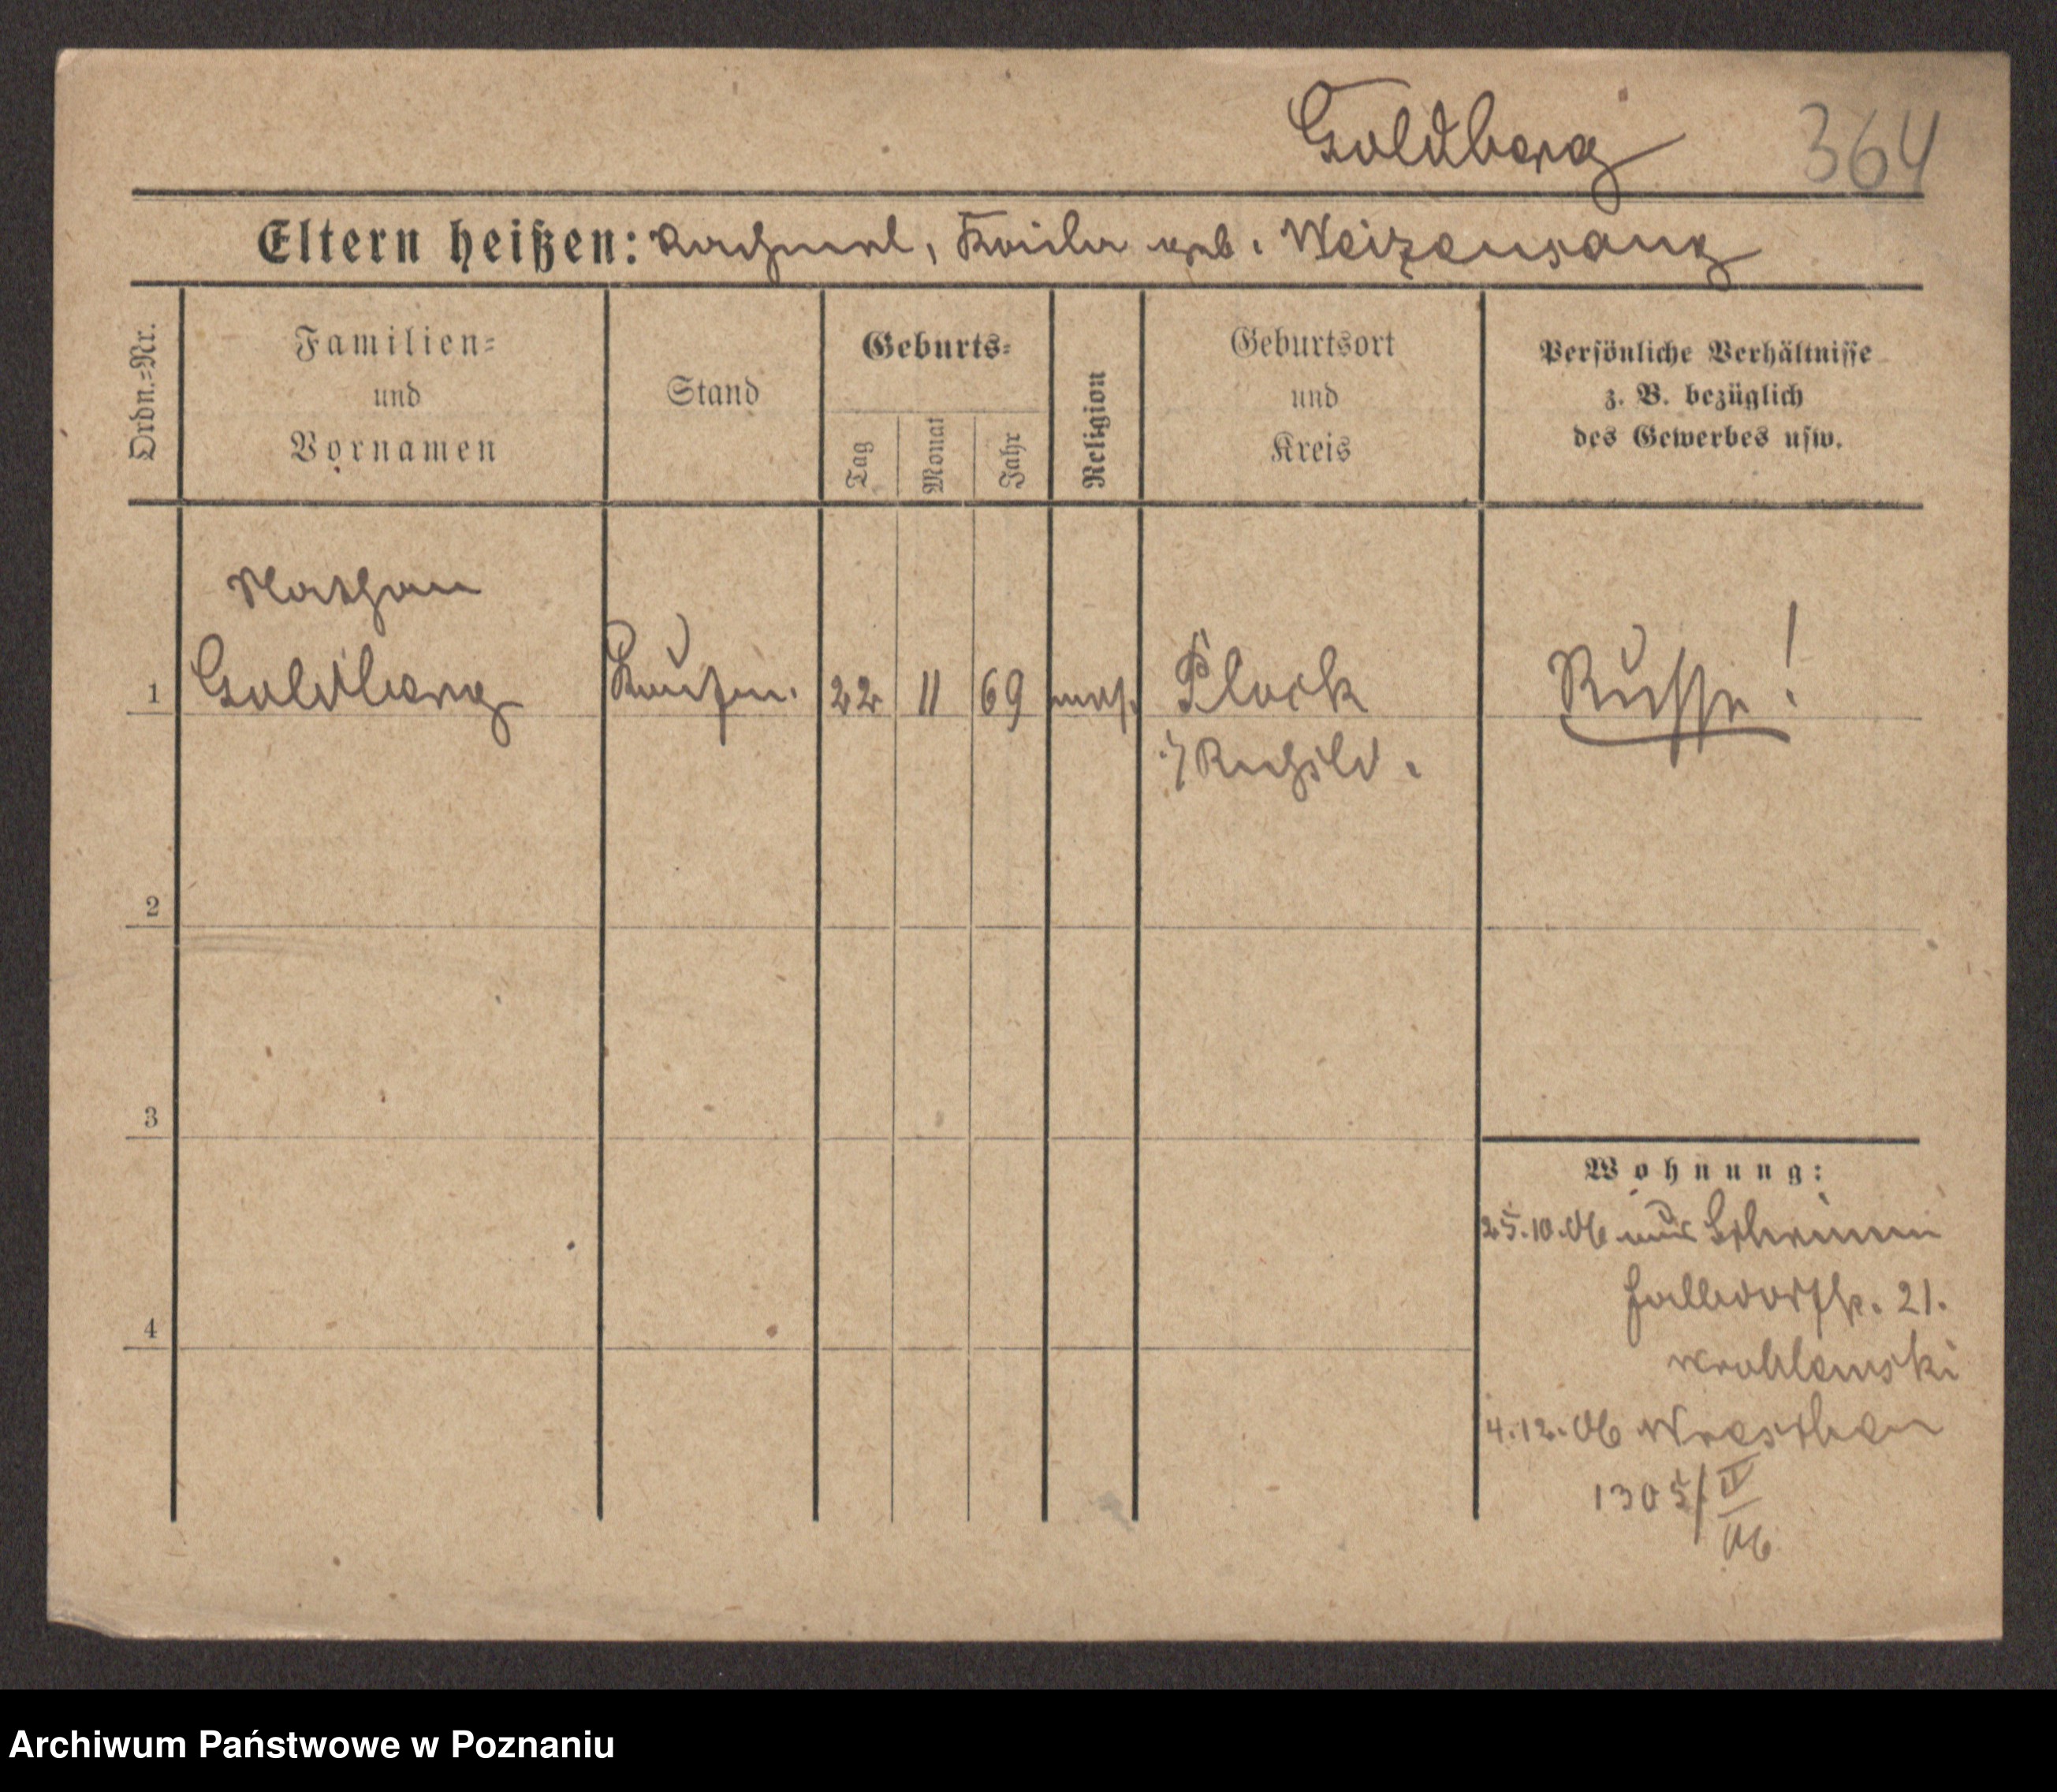 Goldberg 364
Eltern heißen: geb. Weizensang
Ordn.=Nr.
Familien=
und
Vornamen
Stand
Geburts=
Tag
Monat
Jahr
Religion
Geburtsort
und
Kreis
Persönliche Verhältnisse
z. B. bezüglich
des Gewerbes usw.
Nathan
1 Goldberg Kaufm. 22 11 69 mos. Plock Russe!
i/ Rußld.
2
3
Wohnung:
25.10.06 aus Schrimm
Halbdorfstr. 21.
4
Wroblewski
4.12.06 Wreschen
1305/IV
06